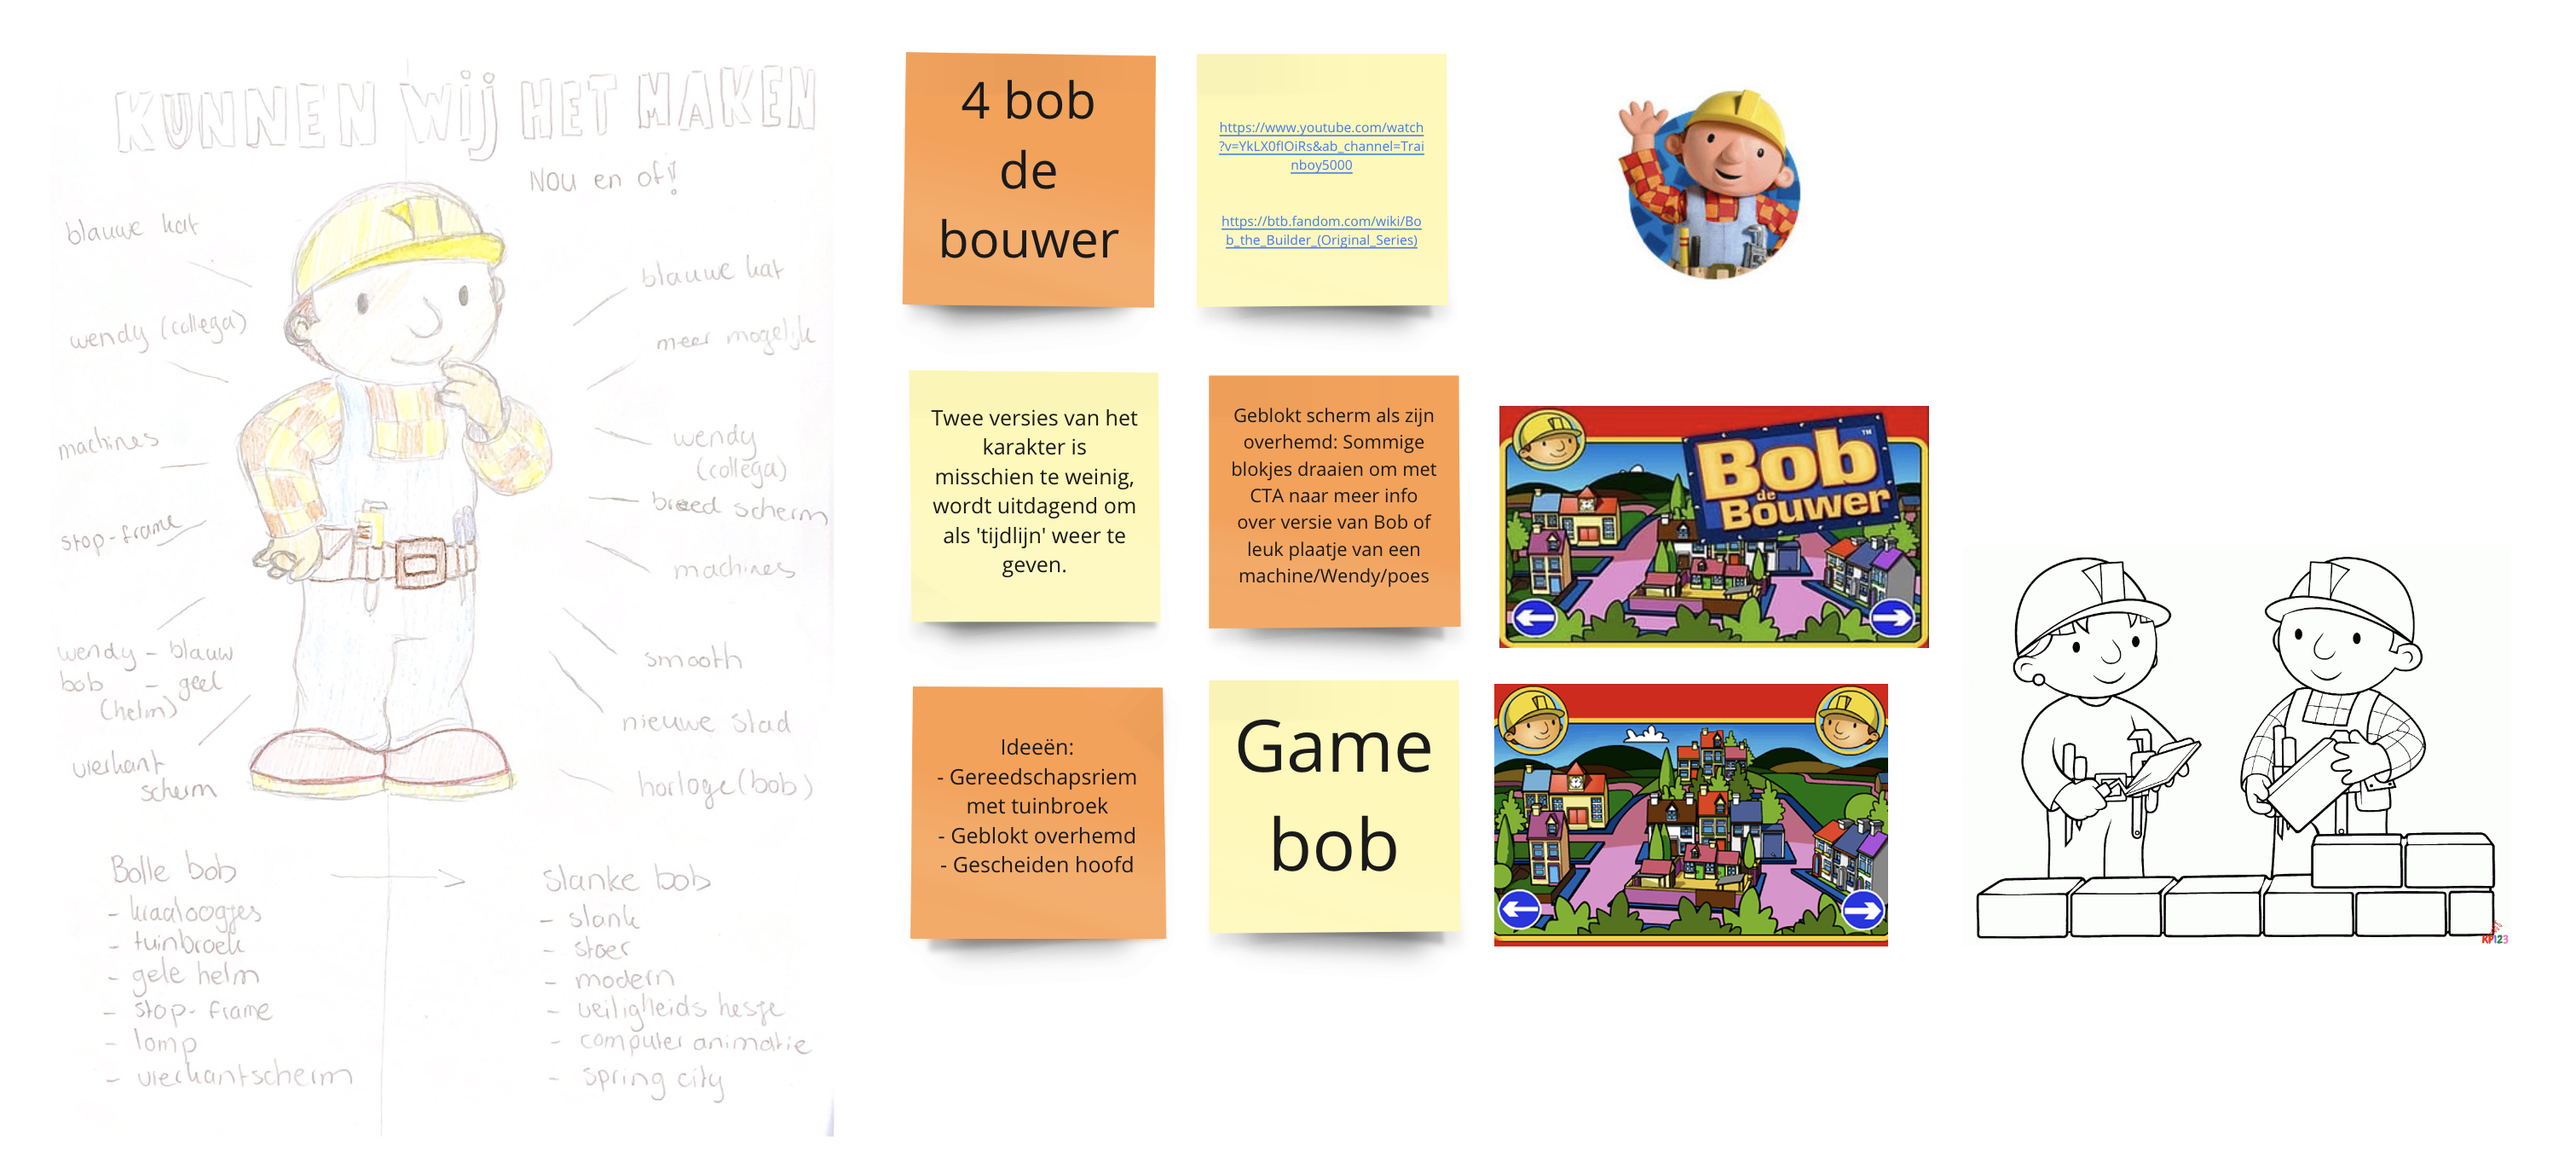 KUNNEN WIJ HET MAKEN
Nou en of!
blauwe kat
wendy (collega)
machines
stop-frame
wendy - blauw
bob - geel
(helm)
vierkant
scherm
blauwe kat
meer mogelijk
wendy
(collega)
breed scherm
machines
smooth
nieuwe stad
horloge (bob)
Bolle bob
- kraaloogjes
- tuinbroek
- gele helm
- stop-frame
- lomp
- vierkantscherm
Slanke bob
- slank
- stoer
- modern
- veiligheids hesje
- computer animatie
- spring city
4 bob
de
bouwer
https://www.youtube.com/watch
?v=YkLX0flOiRs&ab_channel=Trai
nboy5000
https://btb.fandom.com/wiki/Bo
b_the_Builder_(Original_Series)
Twee versies van het
karakter is
misschien te weinig,
wordt uitdagend om
als 'tijdlijn' weer te
geven.
Geblokt scherm als zijn
overhemd: Sommige
blokjes draaien om met
CTA naar meer info
over versie van Bob of
leuk plaatje van een
machine/Wendy/poes
Bob
de
Bouwer
TM
Ideeën:
- Gereedschapsriem
met tuinbroek
- Geblokt overhemd
- Gescheiden hoofd
Game
bob
KP123